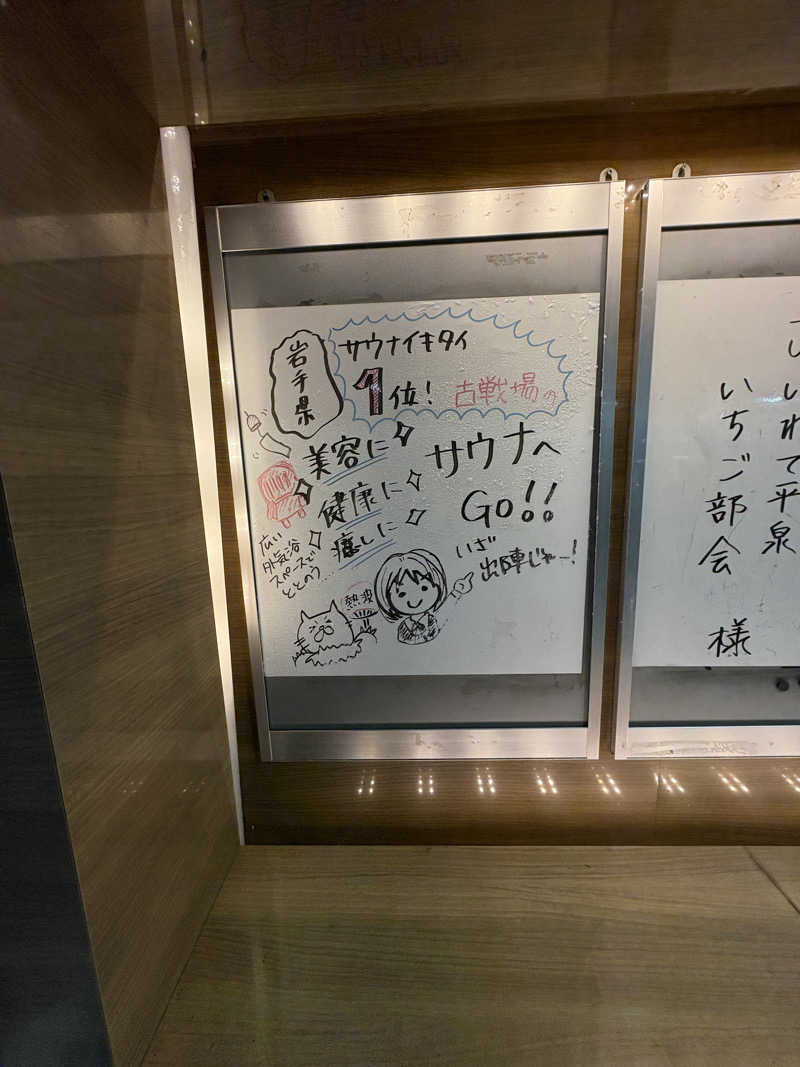 岩手県
サウナイキタイ
1位!
古戦場の
美容に
健康に
癒しに
サウナへ
GO!!
いざ
出陣じゃー!
広い
外気浴
スペースで
ととのう…
熱波
いわて平泉
いちご部会
様